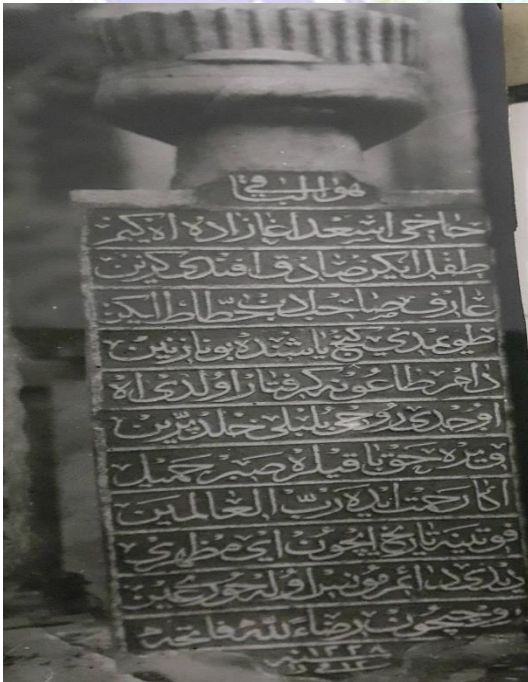 هو الباقي
حاجی اسعد اغازاده اه كیم
طفل ایكن صادق افندی كزین
عارف صاحب ادب خطاط ایكن
طویمدی كنج یاشنده بو نازنین
دام طاعونه كرفتار اولدی اه
اوچدی روحی بلبلی خلد برین
ویره حق باقیلره صبر جمیل
اكا رحمت ایده رب العالمین
فوتینه تاریخ ایچون ای مظهری
دیدی دائم مونس اوله حور عین
روحیچون رضاء لله فاتحه
١٢٢٨